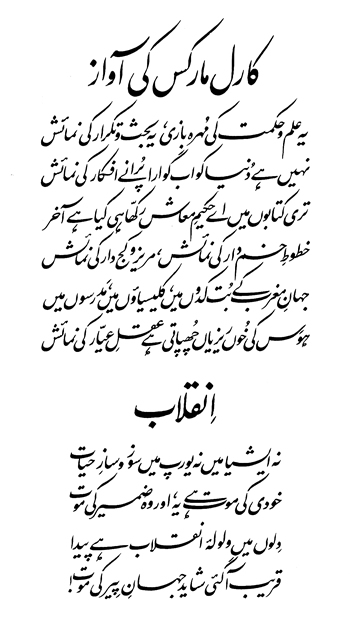 کارل مارکس کی آواز
یہ علم و حکمت کی مُہرہ بازی، یہ بحث و تکرار کی نمائش
نہیں ہے دُنیا کو اب گوارا پُرانے افکار کی نمائش
تری کتابوں میں اے حکیمِ معاش رکھّا ہی کیا ہے آخر
خطوطِ خم دار کی نمائش، مریز و کج دار کی نمائش
جہانِ مغرب کے بُت کدوں میں، کلیسیاؤں میں، مَدرسوں میں
ہَوس کی خُوں ریزیاں چھُپاتی ہے عقلِ عیّار کی نمائش
اِنقلاب
نہ ایشیا میں نہ یورپ میں سوز و سازِ حیات
خودی کی موت ہے یہ، اور وہ ضمیر کی موت
دِلوں میں ولولۂ انقلاب ہے پیدا
قریب آگئی شاید جہانِ پِیر کی موت!